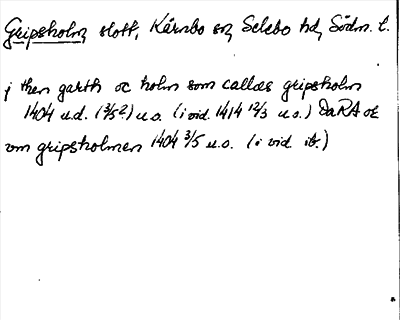 Gripsholm slott, Kärnbo sn, Selebo hd, Södm. l.
j then garth oc holm som callas gripsholm
1404 u.d. (3/5 ?) u.o. (i vid. 1414 12/3 u.o.) DaRA oc
vm gripsholmen 1404 3/5 u.o. (i vid ib.)